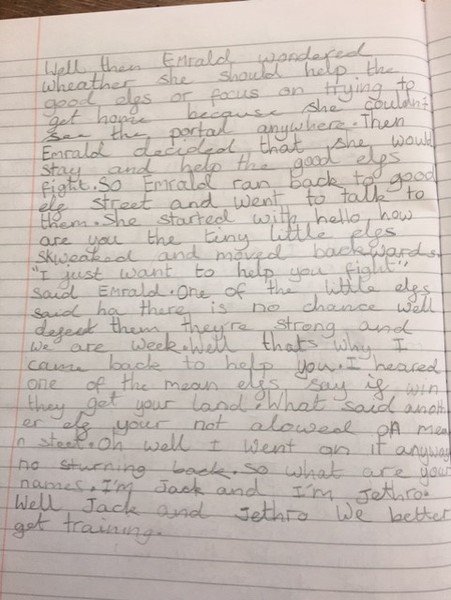 Well then Emrald wondered
wheather she should help the
good elgs or focus on trying to
get home because she couldn't
see the portal anywhere. Then
Emrald decided that she would
stay and help the good elgs
fight. So Emrald ran back to good
elg street and went to talk to
them. She started with hello, how
are you the tiny little elgs
skweaked and moved backwards.
"I just want to help you fight"
said Emrald. One of the little elgs
said ha there is no chance well
degeat them they're strong and
we are week. Well thats why I
came back to help you. I heared
one of the mean elgs say if win
they get your land. What said anoth
er elg your not aloweal on mea
n steet. Oh well I went on it anyway
no sturning back. So what are your
names. I'm Jack and I'm Jethro.
Well Jack and Jethro We better
get training.